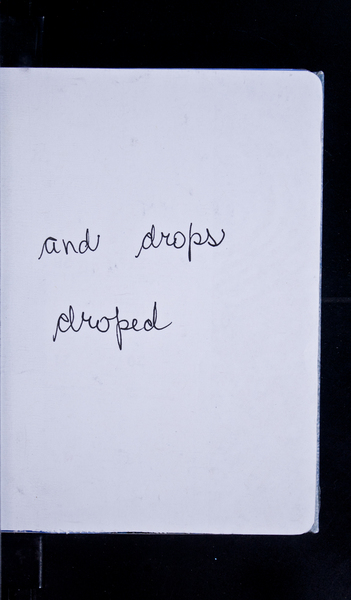 and drops
droped